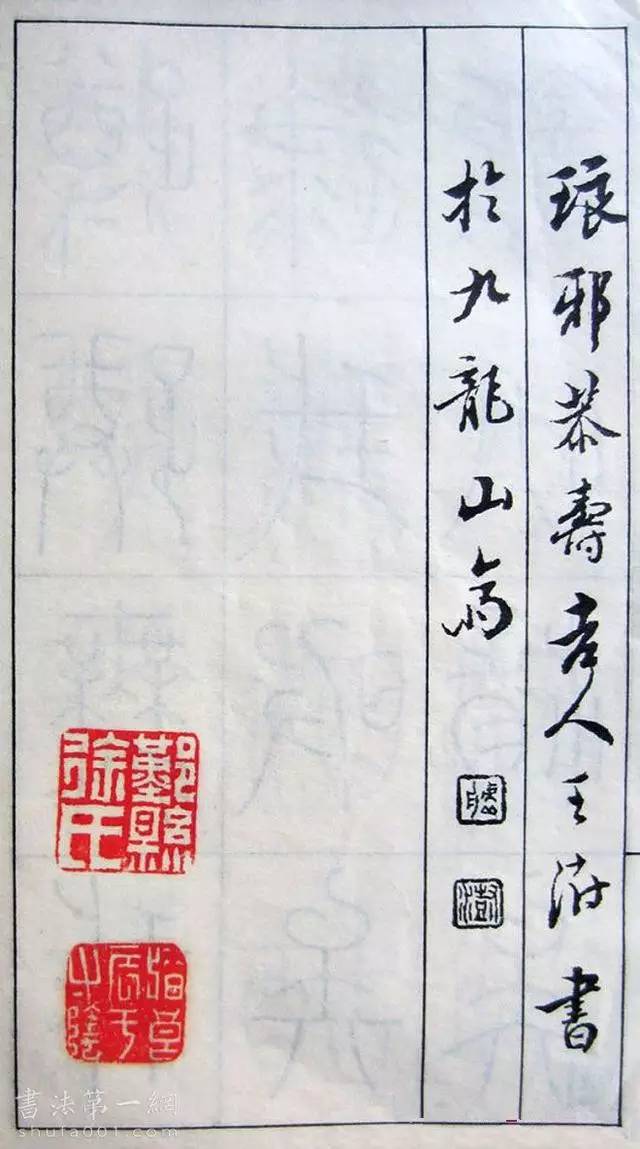 琅邪恭壽老人王澍書
於九龍山齋
澍
鄞縣徐氏
書法第一網
shufa001.com